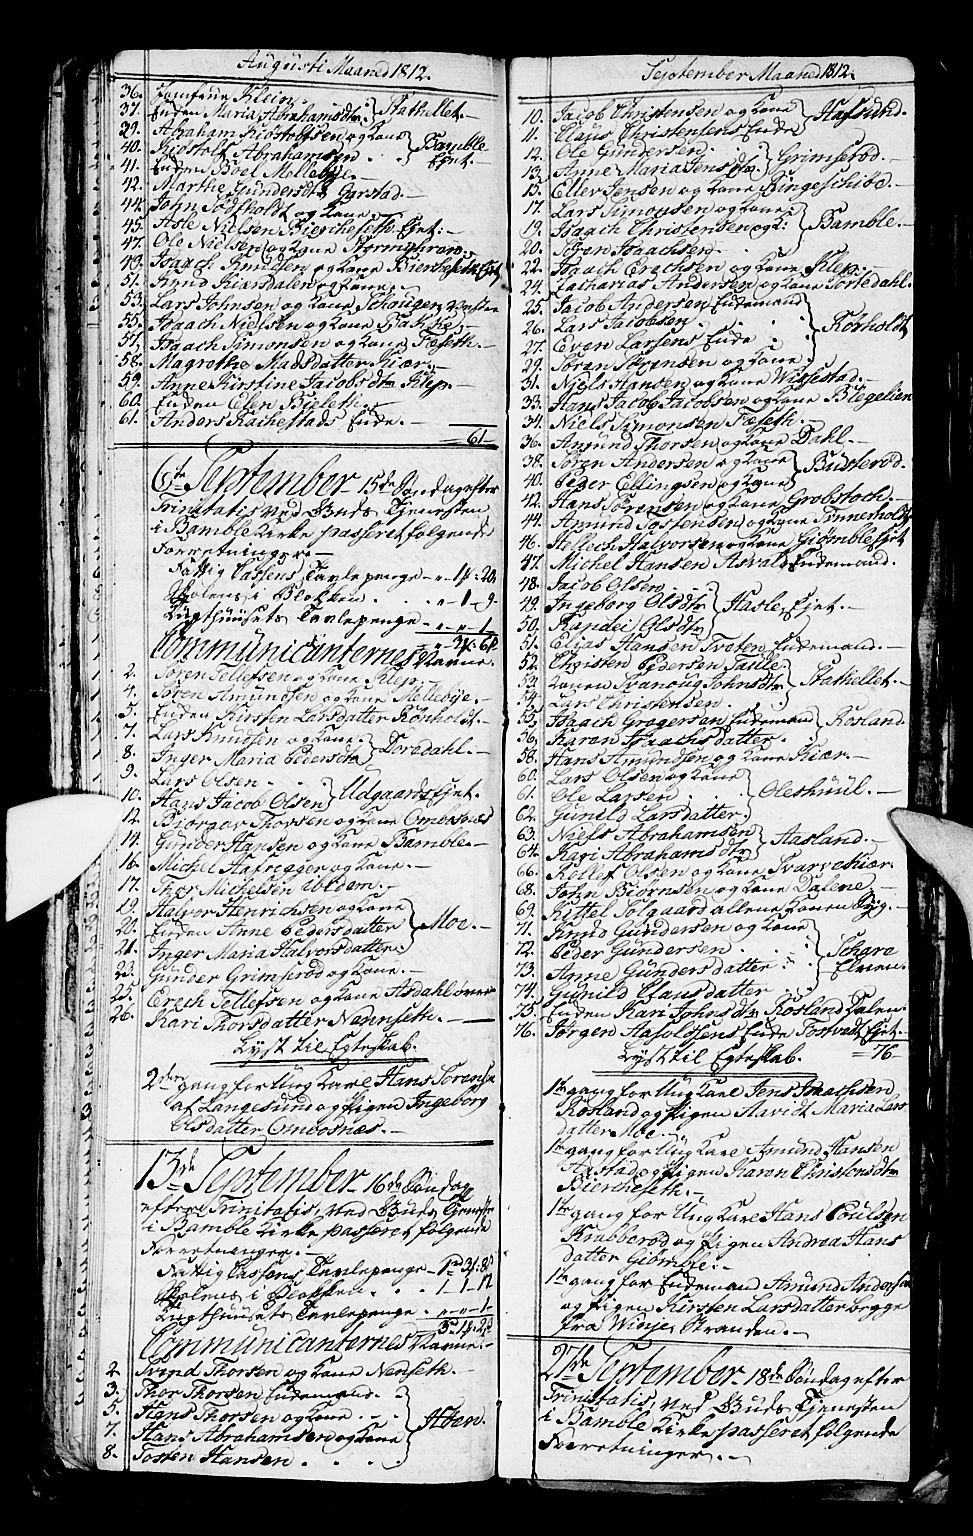 Augusti Maaned 1812.
36. Jomfrue Klein.
37. Enken Maria Abrahamsdtr Stathellet.
39. Abraham Kidstolfsen og Kone
40. Gidstolf Abrahamsen Bamble
41. Enken Boel Mellebye. Ejet.
42. Marthe Gundersdtr Garstad.
44. John Todtholdt og Kone
45. Asle Nielsen Bierckeseth Ejet.
47. Ole Nielsen og Kone Stormyhren.
49. Isaach Knudsen og Kone Bierckeseth Ejet
51. Knud Kiærsdalen og Kone.
53. Lars Johnsen og Kone Schougen vestre
55. Isaach Nielsen og Kone Bakke.
57. Isaach Simonsen og Kone Fæseth.
58. Magrethe Madsdatter Kiær.
59. Anne Kirstine Jacobsdtr Klep.
60. Enken Elen Bieleth.
61. Anders Rachestads Enke.
61
6te September 15de Søndag efter
Trinitatis ved Guds Tjenesten
i Bamble Kirke passeret følgende
Forretninger.
Fattig Cassens Tavlepenge 1 20
Skolens i Blokken 1 9
Tugthuusets Tavlepenge 1
Communicanternes Navne.
2. Søren Tellefsen og Kone Klep.
4. Søren Amundsen og Kone Mellebye.
5. Enken Kirsten Larsdatter Rønholdt.
7. Lars Knudsen og Kone
8. Inger Maria Pedersdtr Tordahl.
9. Lars Olsen
10. Hans Jacob Olsen Udgaards Ejet.
12. Biørger Thorsen og Kone Ombosnæs
14. Gunder Hansen og Kone Bamble.
16. Michel Hafregger og Kone
17. Thor Michelsen ibidem.
19. Halvor Henrichsen og Kone
20. Enken Anne Pedersdatter Moe.
21. Inger Maria Halvorsdatter
23. Gunder Grimsrød og Kone.
25. Erech Tellefsen og Kone Asdahl øvre
26. Kari Thorsdatter Nenseth.
Lyst til Egteskab.
2den gang for Ung Karl Hans Sørensen
af Langesund og Pigen Ingeborg
Olsdatter Ombosnæs.
13de September 16de Søndag
efter Trinitatis, ved Guds Tjeneste
i Bamble Kirke passeret følgende
Forretninger.
Fattig Cassens Tavlepenge 1 3 8
Skolens i Blokken 1 17
Tugthuusets Tavlepenge 1
Communicanternes Navne
2. Svend Thorsen og Kone Nenseth.
3. Thor Thorsen Enkemand
5. Hans Thorsen og Kone
7. Hans Abrahamsen og Kone Aaen.
8. Tosten Hansen
September Maaned 1812.
10. Jacob Christensen og Kone Hafsund.
11. Claus Christensens Enke
12. Ole Gundersen
13. Anne Maria Jensdtr Grimserød.
15. Eller Jensen og Kone
17. Lars Simonsen og Kone
19. Isaach Christensen og K: Bamble.
20. Søren Isaachsen
22. Isaach Erachsen og Kone Klep.
24. Zacharias Andersen og Kone Tordahl.
25. Jacob Andersen Enkemand
26. Lars Jacobsen
27. Even Larsens Enke Rørholdt
29. Søren Sørensen og Kone
31. Niels Hansen og Kone
33. Hans Jacob Jacobsen og Kone
34. Niels Simonsen Fæseth.
36. Amund Thorsen og Kone Dahl.
38. Søren Andersen og Kone
40. Peder Ellingsen og Kone
42. Hans Sørensen og Kone Grobstoch.
44. Amund Tostensen og Kone Tinnerholt
46. Hellech Halvorsen og Kone Giømble Ejet
47. Michel Hansen Asvald Enkemand.
48. Jacob Olsen
49. Ingeborg Olsdtr Hasle Ejet.
50. Randei Olsdtr
51. Elias Hansen Tveten Enkemand.
52. Christen Pedersen
53. Konen Svanoug Johnsdtr Stathellet.
54. Lars Christensen
55. Isaach Gregersen Enkemand Rosland.
56. Karen Isaachsdatter.
58. Hans Amundsen og Kone Kiær.
60. Lars Olsen og Kone
61. Ole Larsen Oleshuul.
62. Gunild Larsdatter
63. Niels Abrahamsen
64. Kari Abrahamsdtr Aasland.
66. Kittel Olsen og Kone Svartekiær.
68. John Biørnsen og Kone Dalene.
69. Kittel Solgaard allene Konen syg.
71. Knud Gundersen og Kone
72. Peder Gundersen Schare
73. Anne Gundersdatter Elven.
74. Gunild Clausdatter
75. Enken Kari Johnsdtr Rosland Dalen
76. Jørgen Hasoldsens Enke Tostvedt Ejet.
Lyst til Egteskab. 76
1te gang for Ung Karl Jens Isaachsen
Rosland og Pigen Maria Lars
datter Moe.
1te gang for Ung Karl Amund Hansen
og Pigen Karen Christensdtr
Bierckeseth.
1te gang for Ung Karl Hans Poulsen
Krabberød og Pigen Andrea Hans
datter Giømble.
1te gang for Enkemand Amund Andersen
og Pigen Kirsten Larsdatter begge
fra Winje Stranden.
27de September 18de Søndag efter
Trinitatis, ved Guds Tjenesten
i Bamble Kirke passeret følgende
Forretninger.